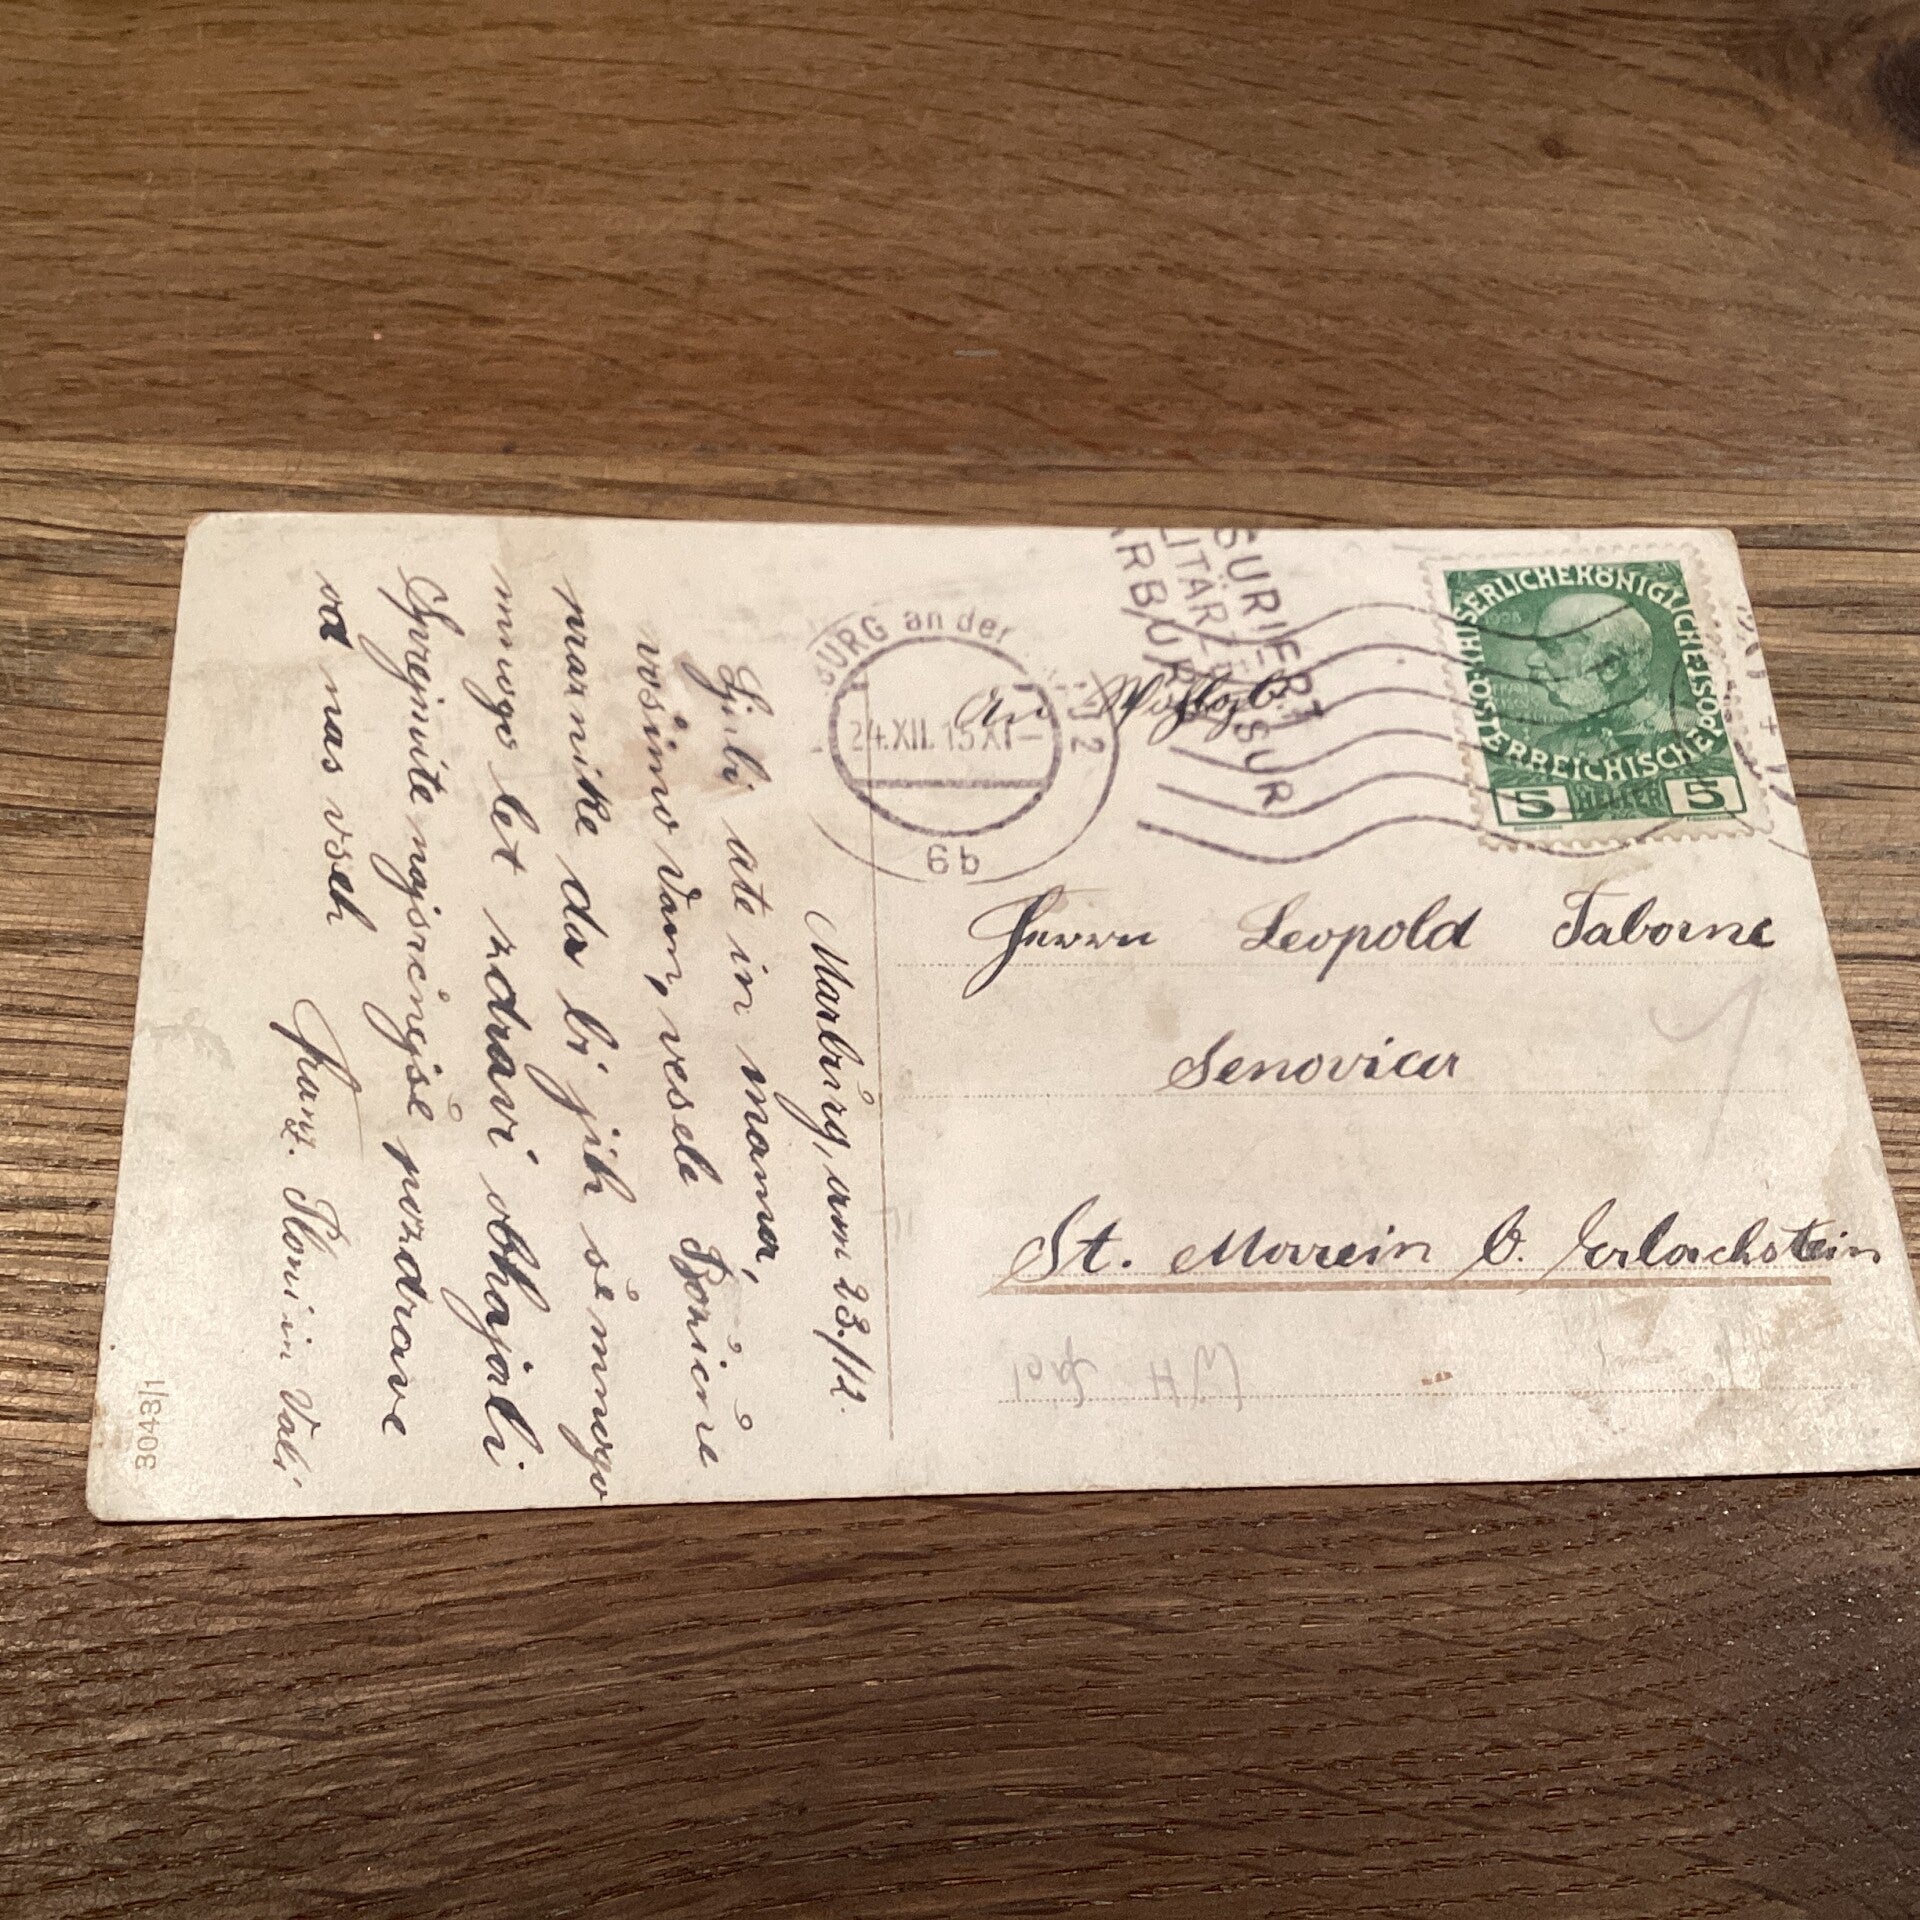 Marbürg, am 23./12.
Ljubi ate in mama,
vošimo Vam, vesele Božične
praznike da bi jih še mnogo
mnogo let zdravi obhajali
Sprejmite najsrčnejše pozdrave
od nas vseh
Franz. Sloni in Vali
3043/1
BURG an der
24.XII. 15 XI-
2
6b
SURIERT
LITÄRZENSUR
ARBUR
ÖSTERREICHISCHE POST
KAISERLICHE KÖNIGLICHE
1908
5 HELLER 5
An
Herrn Leopold Taborne
Senovica
St. Marein b. Erlachstein